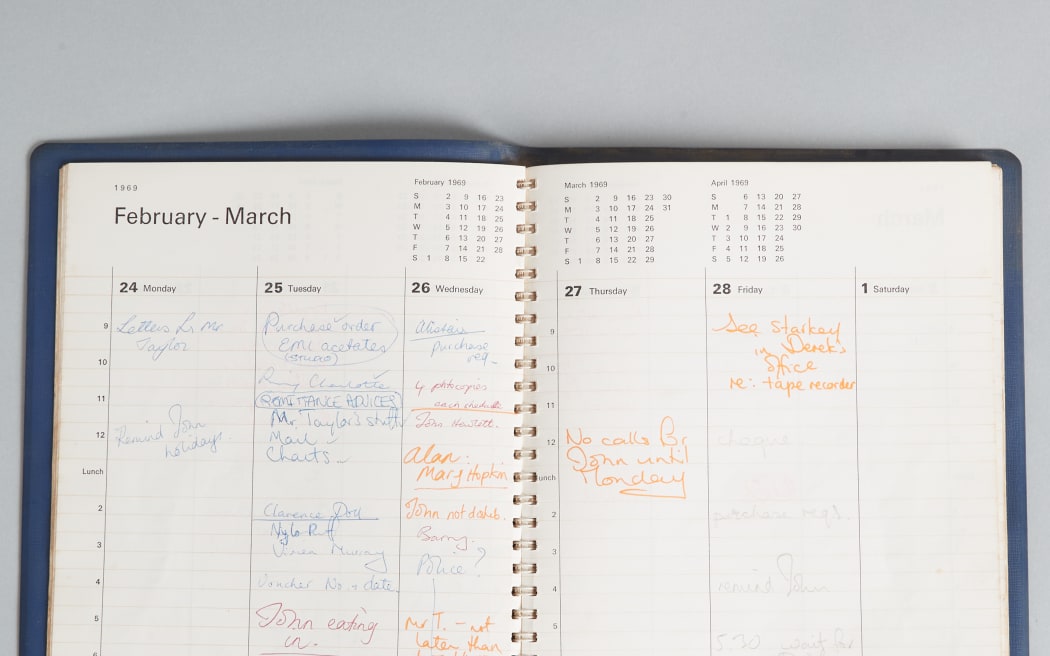 1969
February - March
February 1969
S 2 9 16 23
M 3 10 17 24
T 4 11 18 25
W 5 12 19 26
T 6 13 20 27
F 7 14 21 28
S 1 8 15 22
24 Monday
25 Tuesday
26 Wednesday
9
10
11
12
Lunch
2
3
4
5
6
Letters for Mr
Taylor
Remind John
holidays.
Purchase order
EMI acetates
(STUDIO)
Ring Charlotte
REMITTANCE ADVICES
Mr. Taylor's stuff
Mail
Charts
Clarence
Murray
Voucher No. + date.
John eating
in.
Alistair
purchase
req.
4 photocopies
each
John Hewlett.
Alan:
Mary Hopkin
John not disturb.
Barry.
Police?
Mr T. - not
later than
March 1969
S 2 9 16 23 30
M 3 10 17 24 31
T 4 11 18 25
W 5 12 19 26
T 6 13 20 27
F 7 14 21 28
S 1 8 15 22 29
April 1969
S 6 13 20 27
M 7 14 21 28
T 1 8 15 22 29
W 2 9 16 23 30
T 3 10 17 24
F 4 11 18 25
S 5 12 19 26
27 Thursday
28 Friday
1 Saturday
9
10
11
12
unch
2
3
4
5
No calls for
John until
Monday
See Starkey
in Derek's
office
re: tape recorder
cheque
purchase reqs.
remind John
5.30 wait for